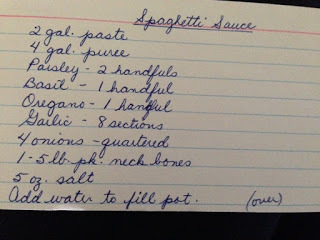 Spaghetti Sauce
2 gal. paste
4 gal. puree
Parsley - 2 handfuls
Basil - 1 handful
Oregano - 1 handful
Garlic - 8 sections
4 onions - quartered
1 - 5 lb. pk. neck bones
5 oz. salt
Add water to fill pot. (over)